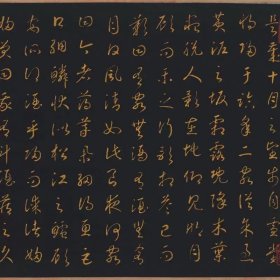 是歲十月之望步自雪堂
將歸於臨皋二客從予過
黃泥之坂霜露既降木葉
盡脫人影在地仰見明月
顧而樂之行歌相答已而
歎曰有客無酒有酒無肴
月白風清如此良夜何客
曰今者薄暮舉網得魚巨
口細鱗狀似松江之鱸顧
安所得酒乎歸而謀諸婦
婦曰我有斗酒藏之久